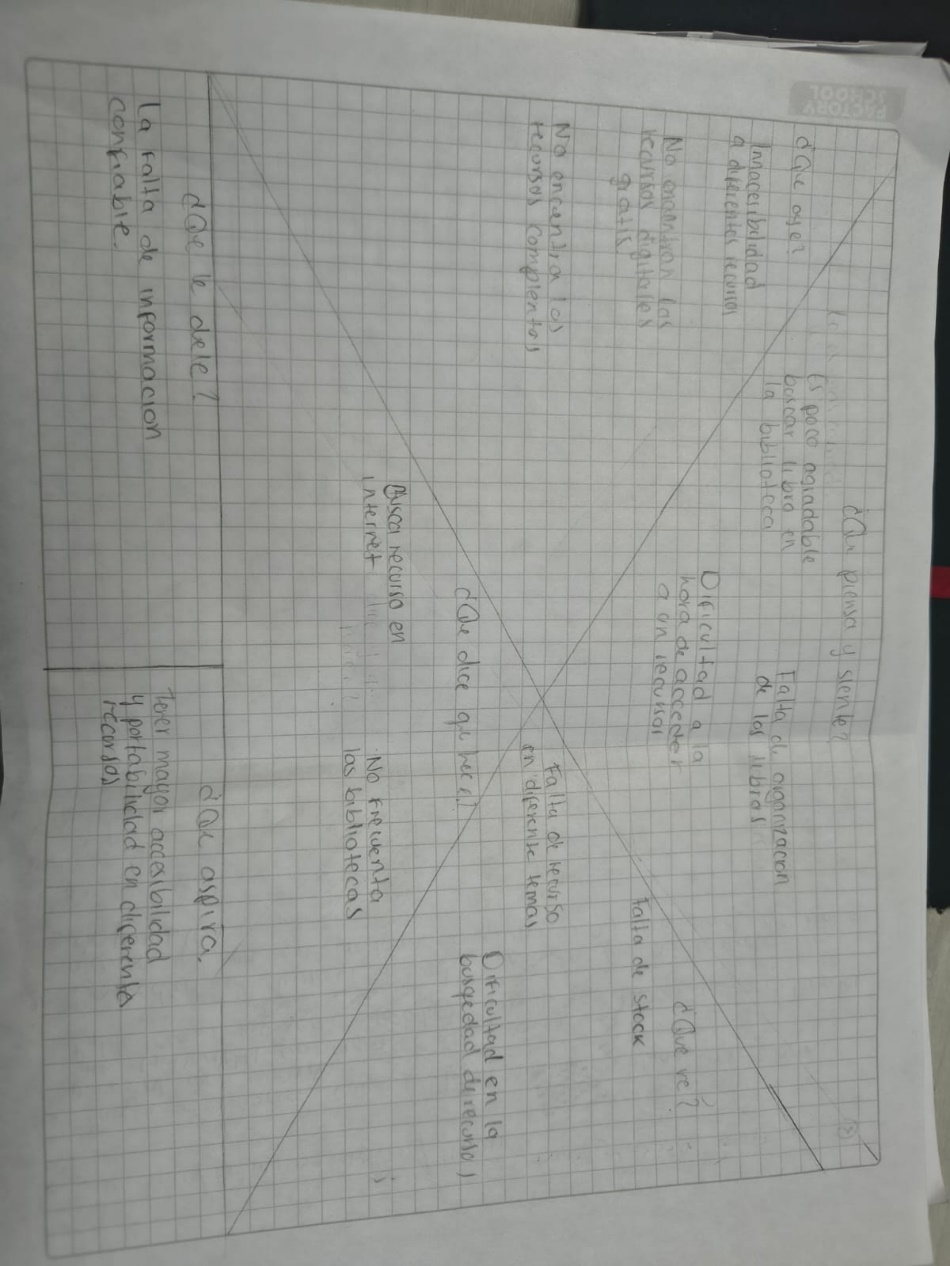 FACTORY
SCHOOL
¿Que piensa y siente?
Es poco agradable
buscar libro en
la biblioteca
Falta de organizacion
de los libros
Dificultad a la
hora de acceder
a un recursos
¿Que oye?
Innacesibilidad
a diferentes recursos
No encontran los
recursos digitales
gratis
No encentra los
recursos complentos
¿Que ve?
Falta de stock
Falta de recurso
en diferente temas
Dificultad en la
busqedad de recursos
¿Que dice que hace?
Busca recurso en
internet
·No frecuenta
las bibliotecas
¿Que le dele?
La falta de informacion
confiable.
¿Que aspira.
Tener mayor accesibilidad
y portabilidad en diferentes
recursos